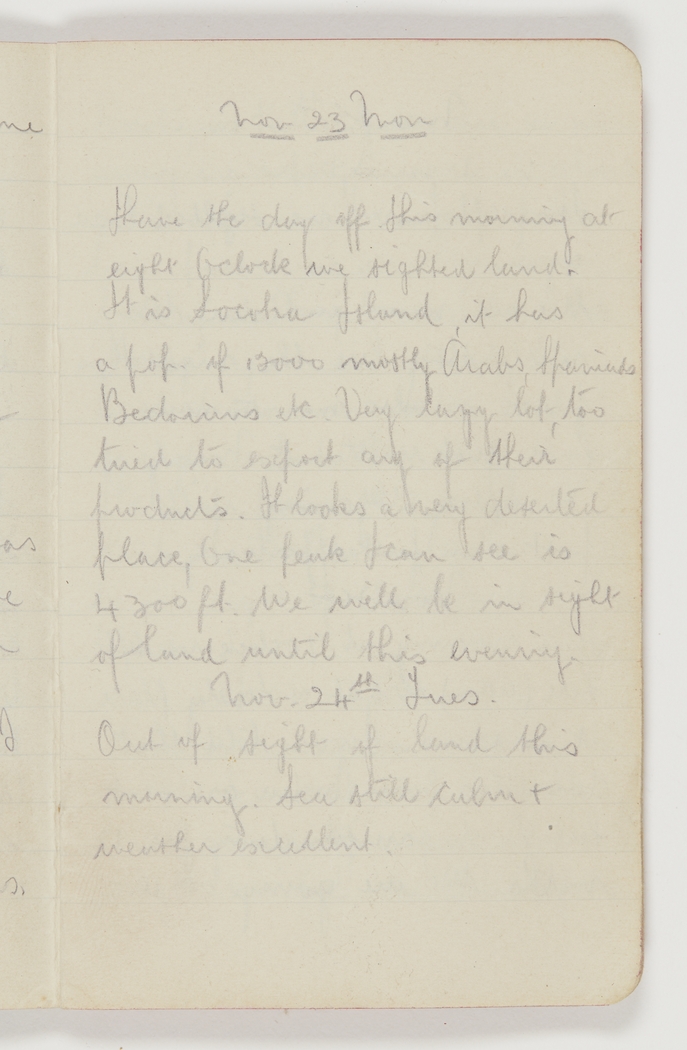 ne
Nov 23 Mon
I have the day off. This morning at
eight Oclock we sighted land.
It is Socotra Island, it has
a pop. of 13000 mostly Arabs, Spaniards
Bedouins etc. Very lazy lot, too
tired to export any of their
products. It looks a very deserted
place, One peak I can see is
4300 ft. We will be in sight
of land until this evening.
Nov. 24th Tues.
Out of sight of land this
morning. Sea still calm +
weather excellent.